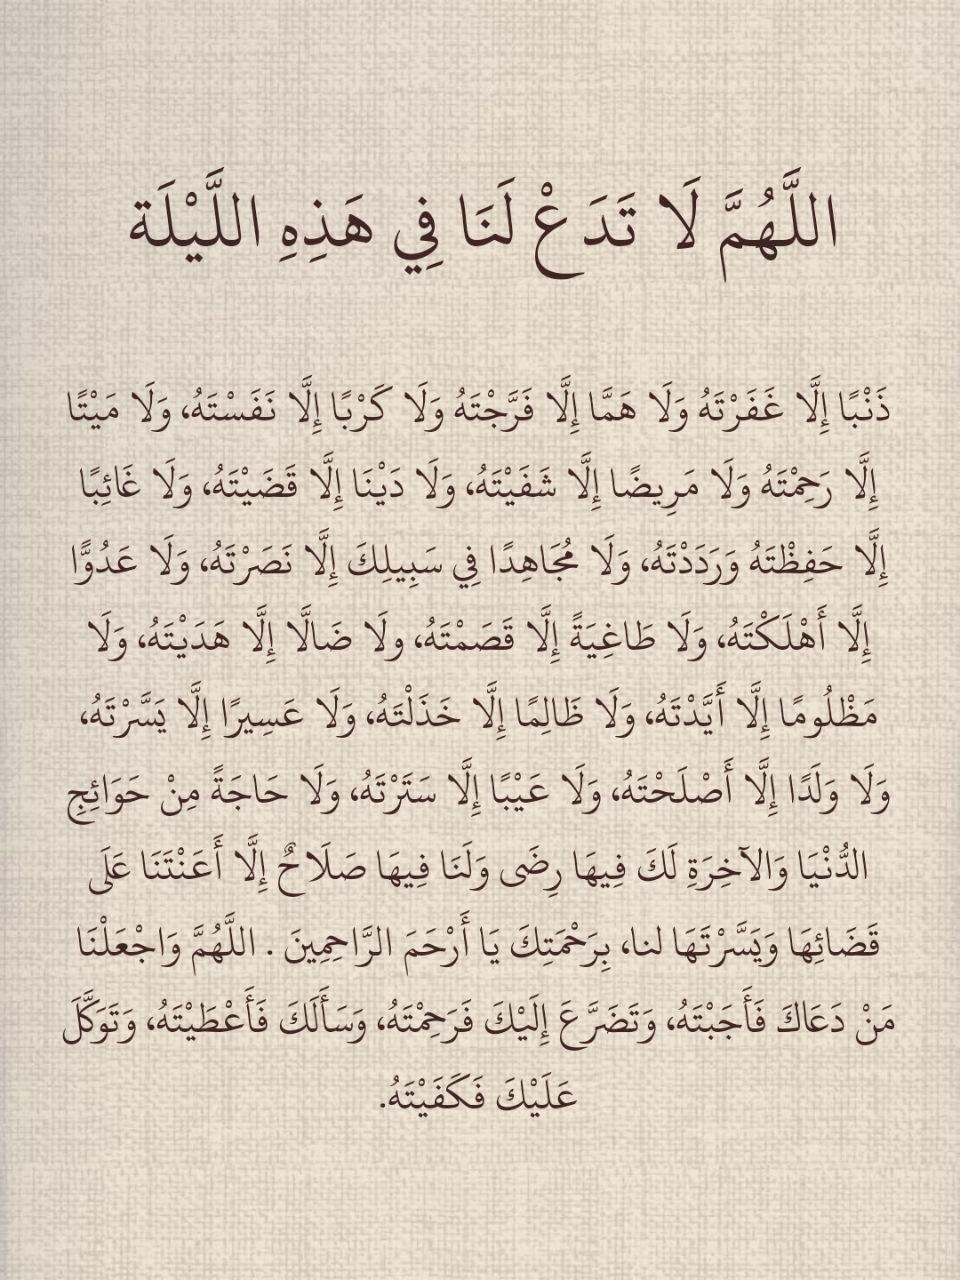 اللَّهُمَّ لَا تَدَعْ لَنَا فِي هَذِهِ اللَّيْلَة
ذَنْبًا إِلَّا غَفَرْتَهُ وَلَا هَمَّا إِلَّا فَرَّجْتَهُ وَلَا كَرْبًا إِلَّا نَفَسْتَهُ، وَلَا مَيْتًا
إِلَّا رَحِمْتَهُ وَلَا مَرِيضًا إِلَّا شَفَيْتَهُ، وَلَا دَيْنَا إِلَّا قَضَيْتَهُ، وَلَا غَائِبًا
إِلَّا حَفِظْتَهُ وَرَدَدْتَهُ، وَلَا مُجَاهِدًا فِي سَبِيلِكَ إِلَّا نَصَرْتَهُ، وَلَا عَدُوًّا
إِلَّا أَهْلَكْتَهُ، وَلَا طَاغِيَةً إِلَّا قَصَمْتَهُ، ولَا ضَالَّا إِلَّا هَدَيْتَهُ، وَلَا
مَظْلُومًا إِلَّا أَيَّدْتَهُ، وَلَا ظَالِمًا إِلَّا خَذَلْتَهُ، وَلَا عَسِيرًا إِلَّا يَسَّرْتَهُ،
وَلَا وَلَدًا إِلَّا أَصْلَحْتَهُ، وَلَا عَيْبًا إِلَّا سَتَرْتَهُ، وَلَا حَاجَةً مِنْ حَوَائِجِ
الدُّنْيَا وَالآخِرَةِ لَكَ فِيهَا رِضَى وَلَنَا فِيهَا صَلَاحٌ إِلَّا أَعَنْتَنَا عَلَى
قَضَائِهَا وَيَسَّرْتَهَا لنا، بِرَحْمَتِكَ يَا أَرْحَمَ الرَّاحِمِينَ . اللَّهُمَّ وَاجْعَلْنَا
مَنْ دَعَاكَ فَأَجَبْتَهُ، وَتَضَرَّعَ إِلَيْكَ فَرَحِمْتَهُ، وَسَأَلَكَ فَأَعْطَيْتَهُ، وَتَوَكَّلَ
عَلَيْكَ فَكَفَيْتَهُ.